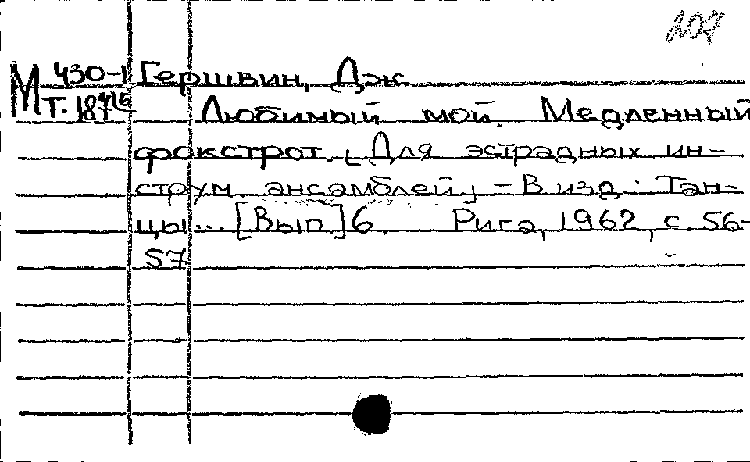 207
М 430-1 Гершвин, Дж.
Т. 187 Любимый мой. Медленный
фокстрот. [Для эстрадных ин-
струм. ансамблей] - В изд.: Тан-
цы... [Вып] 6. Рига, 1962, с. 56-
57